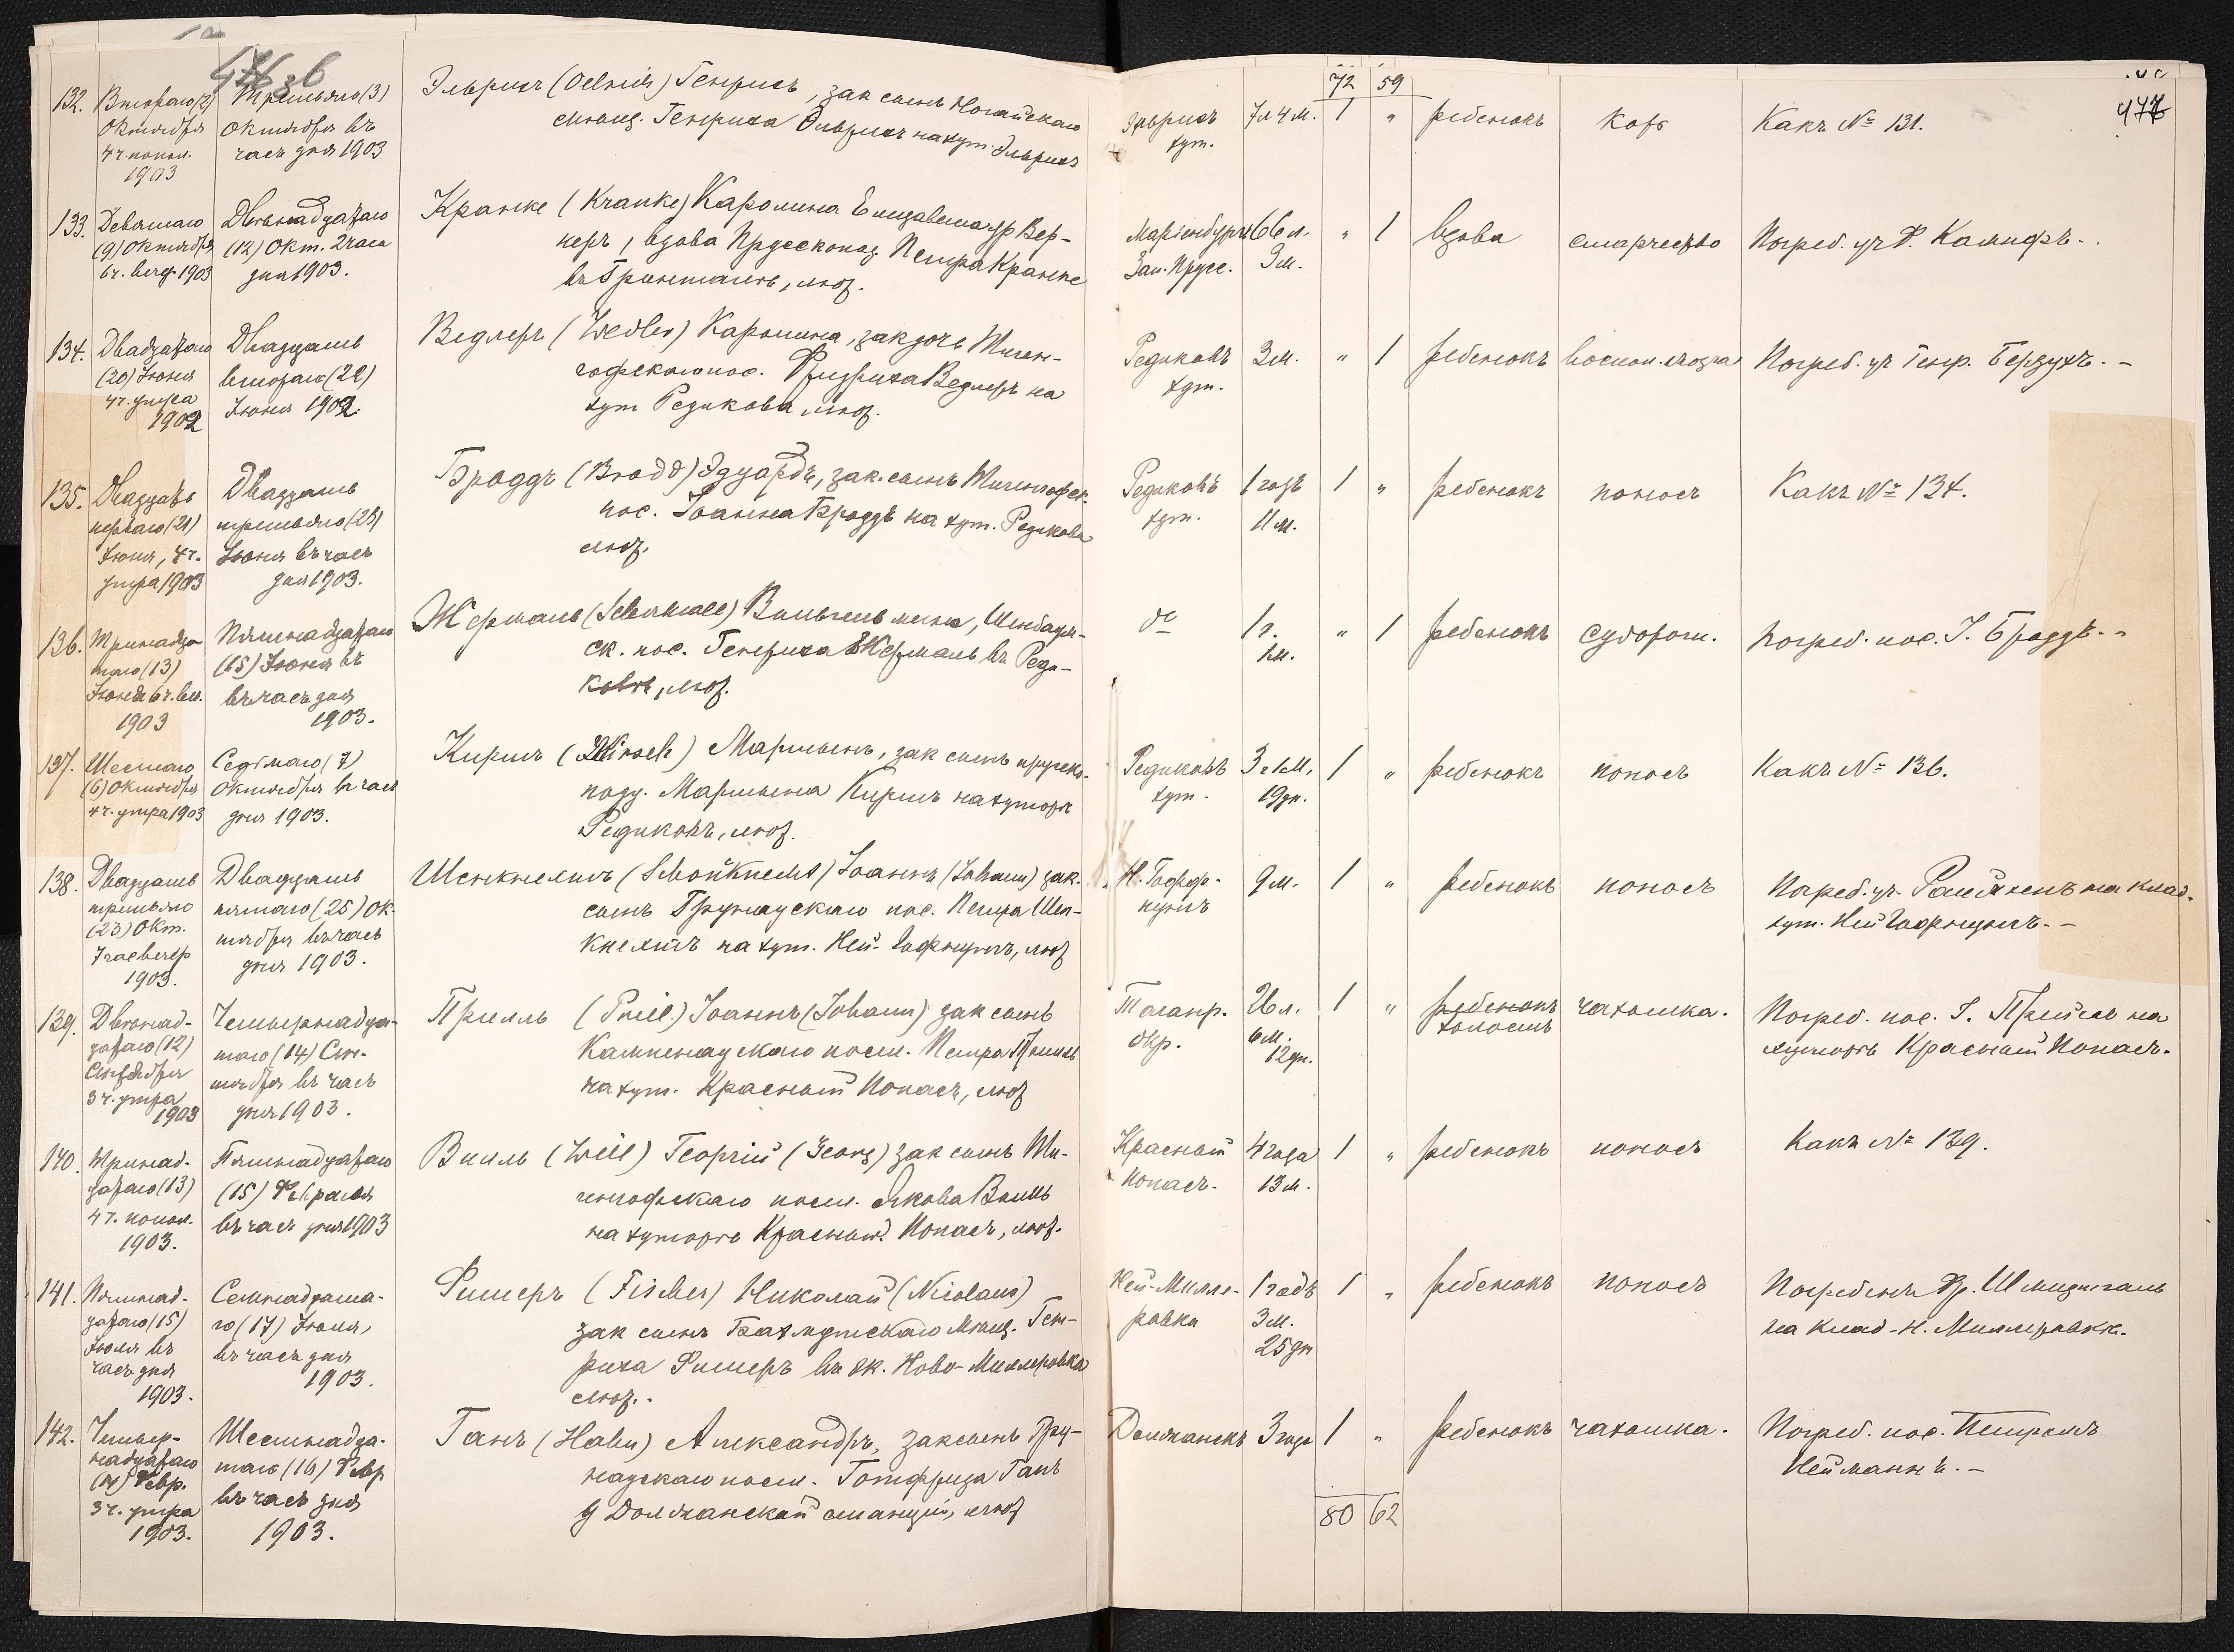 72 59
477
132. Второго (2) Октября 4 ч. попол. 1903
Третьяго (3) Октября въ часъ дня 1903
Эльрихъ (Oelrich) Генрихъ, зак сынъ Ногайскаго
мѣщ. Генриха Эльрихъ на хут. Эльрихъ
Эльрихъ хут.
7 л 4 м.
1 „
ребенокъ
корь
Какъ № 131.
133. Девятаго (9) Октября 6 ч. веч. 1903
Двѣнадцатаго (12) Окт. 2 часа дня 1903.
Кранке (Kranke) Каролина Елизавета ур Вер-
неръ, вдова Прусскопод. Петра Кранке
въ Гринталѣ, лют.
Маріенбургъ Зап. Прусс.
66 л. 3 м.
„ 1
вдова
старчество
Погреб. уч Ф. Кампфъ.
134. Двадцатаго (20) Іюня 4 ч. утра 1902
Двадцать втораго (22) Іюня 1902.
Ведлеръ (Wedler) Каролина, зак дочь Тиген-
гофскаго пос. Фридриха Ведлеръ на
хут Редикова, лют.
Редиковъ хут.
3 м.
„ 1
ребенокъ
воспал. мозга
Погреб. уч Генр. Берзухъ. –
135. Двадцать перваго (21) Іюня, 4 ч. утра 1903
Двадцать третьяго (23) Іюня въ часъ дня 1903.
Броддъ (Brodd) Эдуардъ, зак. сынъ Тигенгофск.
пос. Іоанна Броддъ на хут. Редикова
лют.
Редиковъ хут.
1 годъ 11 м.
1 „
ребенокъ
поносъ
Какъ № 134.
136. Тринадца таго (13) Іюня 6 ч. веч. 1903
Пятнадцатаго (15) Іюня въ въ часъ дня 1903.
Жермаль (Schermall) Вильгельмина, Шенбаум-
ск. пос. Генриха Жермаль въ Реди-
ковѣ, лют.
dº
1 г. 1 м.
„ 1
ребенокъ
судорог.
погреб. пос. І. Броддъ. –
137. Шестаго (6) Октября 4 ч. утра 1903
Седьмаго (7) Октября въ часъ дня 1903.
Киршъ (Kirsch) Мартынъ, зак сынъ прусско-
подд. Мартына Киршъ на хуторѣ
Редиковъ, лют.
Редиковъ хут.
3 г. 1 м. 19 дн.
1 „
ребенокъ
поносъ
Какъ № 136.
138. Двадцать третьяго (23) Окт. 7 час вечер 1903.
Двадцать пятаго (25) Ок- тября въ часъ дня 1903.
Шенкнехтъ (Schönknecht) Іоаннъ (Johann) зак.
сынъ Грунаускаго пос. Петра Шен-
кнехтъ на хут. Ней-Гофнунгъ, лют
Н. Гофф- нунгъ
9 м.
1 „
ребенокъ
поносъ
Погреб. уч. Раймхенъ на клад.
хут. Ней Гофнунгъ. –
139. Двѣнад- цатаго (12) Сентября 3 ч. утра 1903
Четырнадца- таго (14) Сен- тября въ часъ дня 1903.
Прилль (Prill) Іоаннъ (Johann) зак сынъ
Кампенаускаго посел. Петра Прилль
на хут. Красный Попасъ, лют
Таганр. окр.
26 л. 6 м. 12 дн.
1 „
ребенокъ холостъ
чахотка.
Погреб. пос. І. Прилль на
хуторѣ Красный Попасъ.
140. Тринад- цатаго (13) 4 ч. попол. 1903.
Пятнадцатаго (15) Февраля въ часъ дня 1903
Вилль (Will) Георгій (Georg) зак сынъ Ти-
генгофскаго посел. Якова Вилль
на хуторѣ Красный Попасъ, лют.
Красный Попасъ.
4 года 13 м.
1 „
ребенокъ
поносъ
Какъ № 139.
141. Пятнад- цатаго (15) Іюля въ часъ дня 1903.
Семнадцата- го (17) Іюля, въ часъ дня 1903.
Фишеръ (Fischer) Николай (Nicolaus)
зак сынъ Бахмутскаго Мѣщ. Ген-
риха Фишеръ въ эк. Ново-Миллеровка
лют. -
Ней-Милле- ровка
1 годъ 3 м. 25 дн
1 „
ребенокъ
поносъ
Погребенъ Фр. Шмидтгаль
на клад. Н. Миллеровк.
142. Четыр- надцатаго (14) Февр. 3 ч. утра 1903.
Шестнадца- таго (16) Февр въ часъ дня 1903.
Ганъ (Hahn) Александръ, зак сынъ Гру-
наускаго посел. Готфрида Ганъ
у Должанской станціи, лют
Должанскъ
3 года
1 „
ребенокъ
чахотка.
Погреб. пос. Петромъ
Нейманнъ. –
80 62